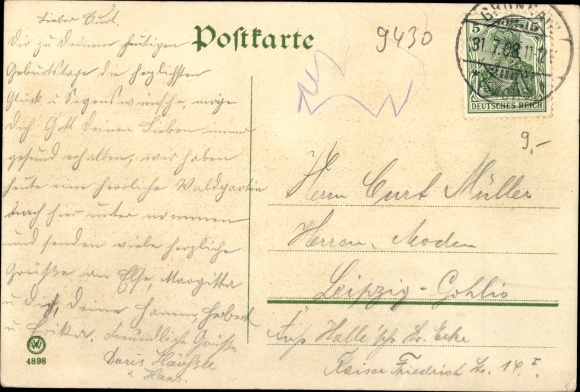 Lieber Curt.
Dir zu Deinem heutigen
Geburtstage die herzlichsten
Glück u Segenswünsche, möge
Dich Gott Deinen Lieben immer
gesund erhalten, wir haben
heute eine herrliche Waldpartie
nach hier unter nommen
und senden viele herzliche
Grüße an Else, Margitta
u Dich, Deine Hanny, Herbert
u Erika. Freundliche Grüße
Doris
u Hans.
Postkarte
9430
31.7.08.11-12
5
DEUTSCHES REICH
9,-
Herrn Curt Müller
Herren-Moden
Leipzig-Gohlis
Halle'sche Str. Ecke
Kaiser Friedrich Str. 14 I
4898